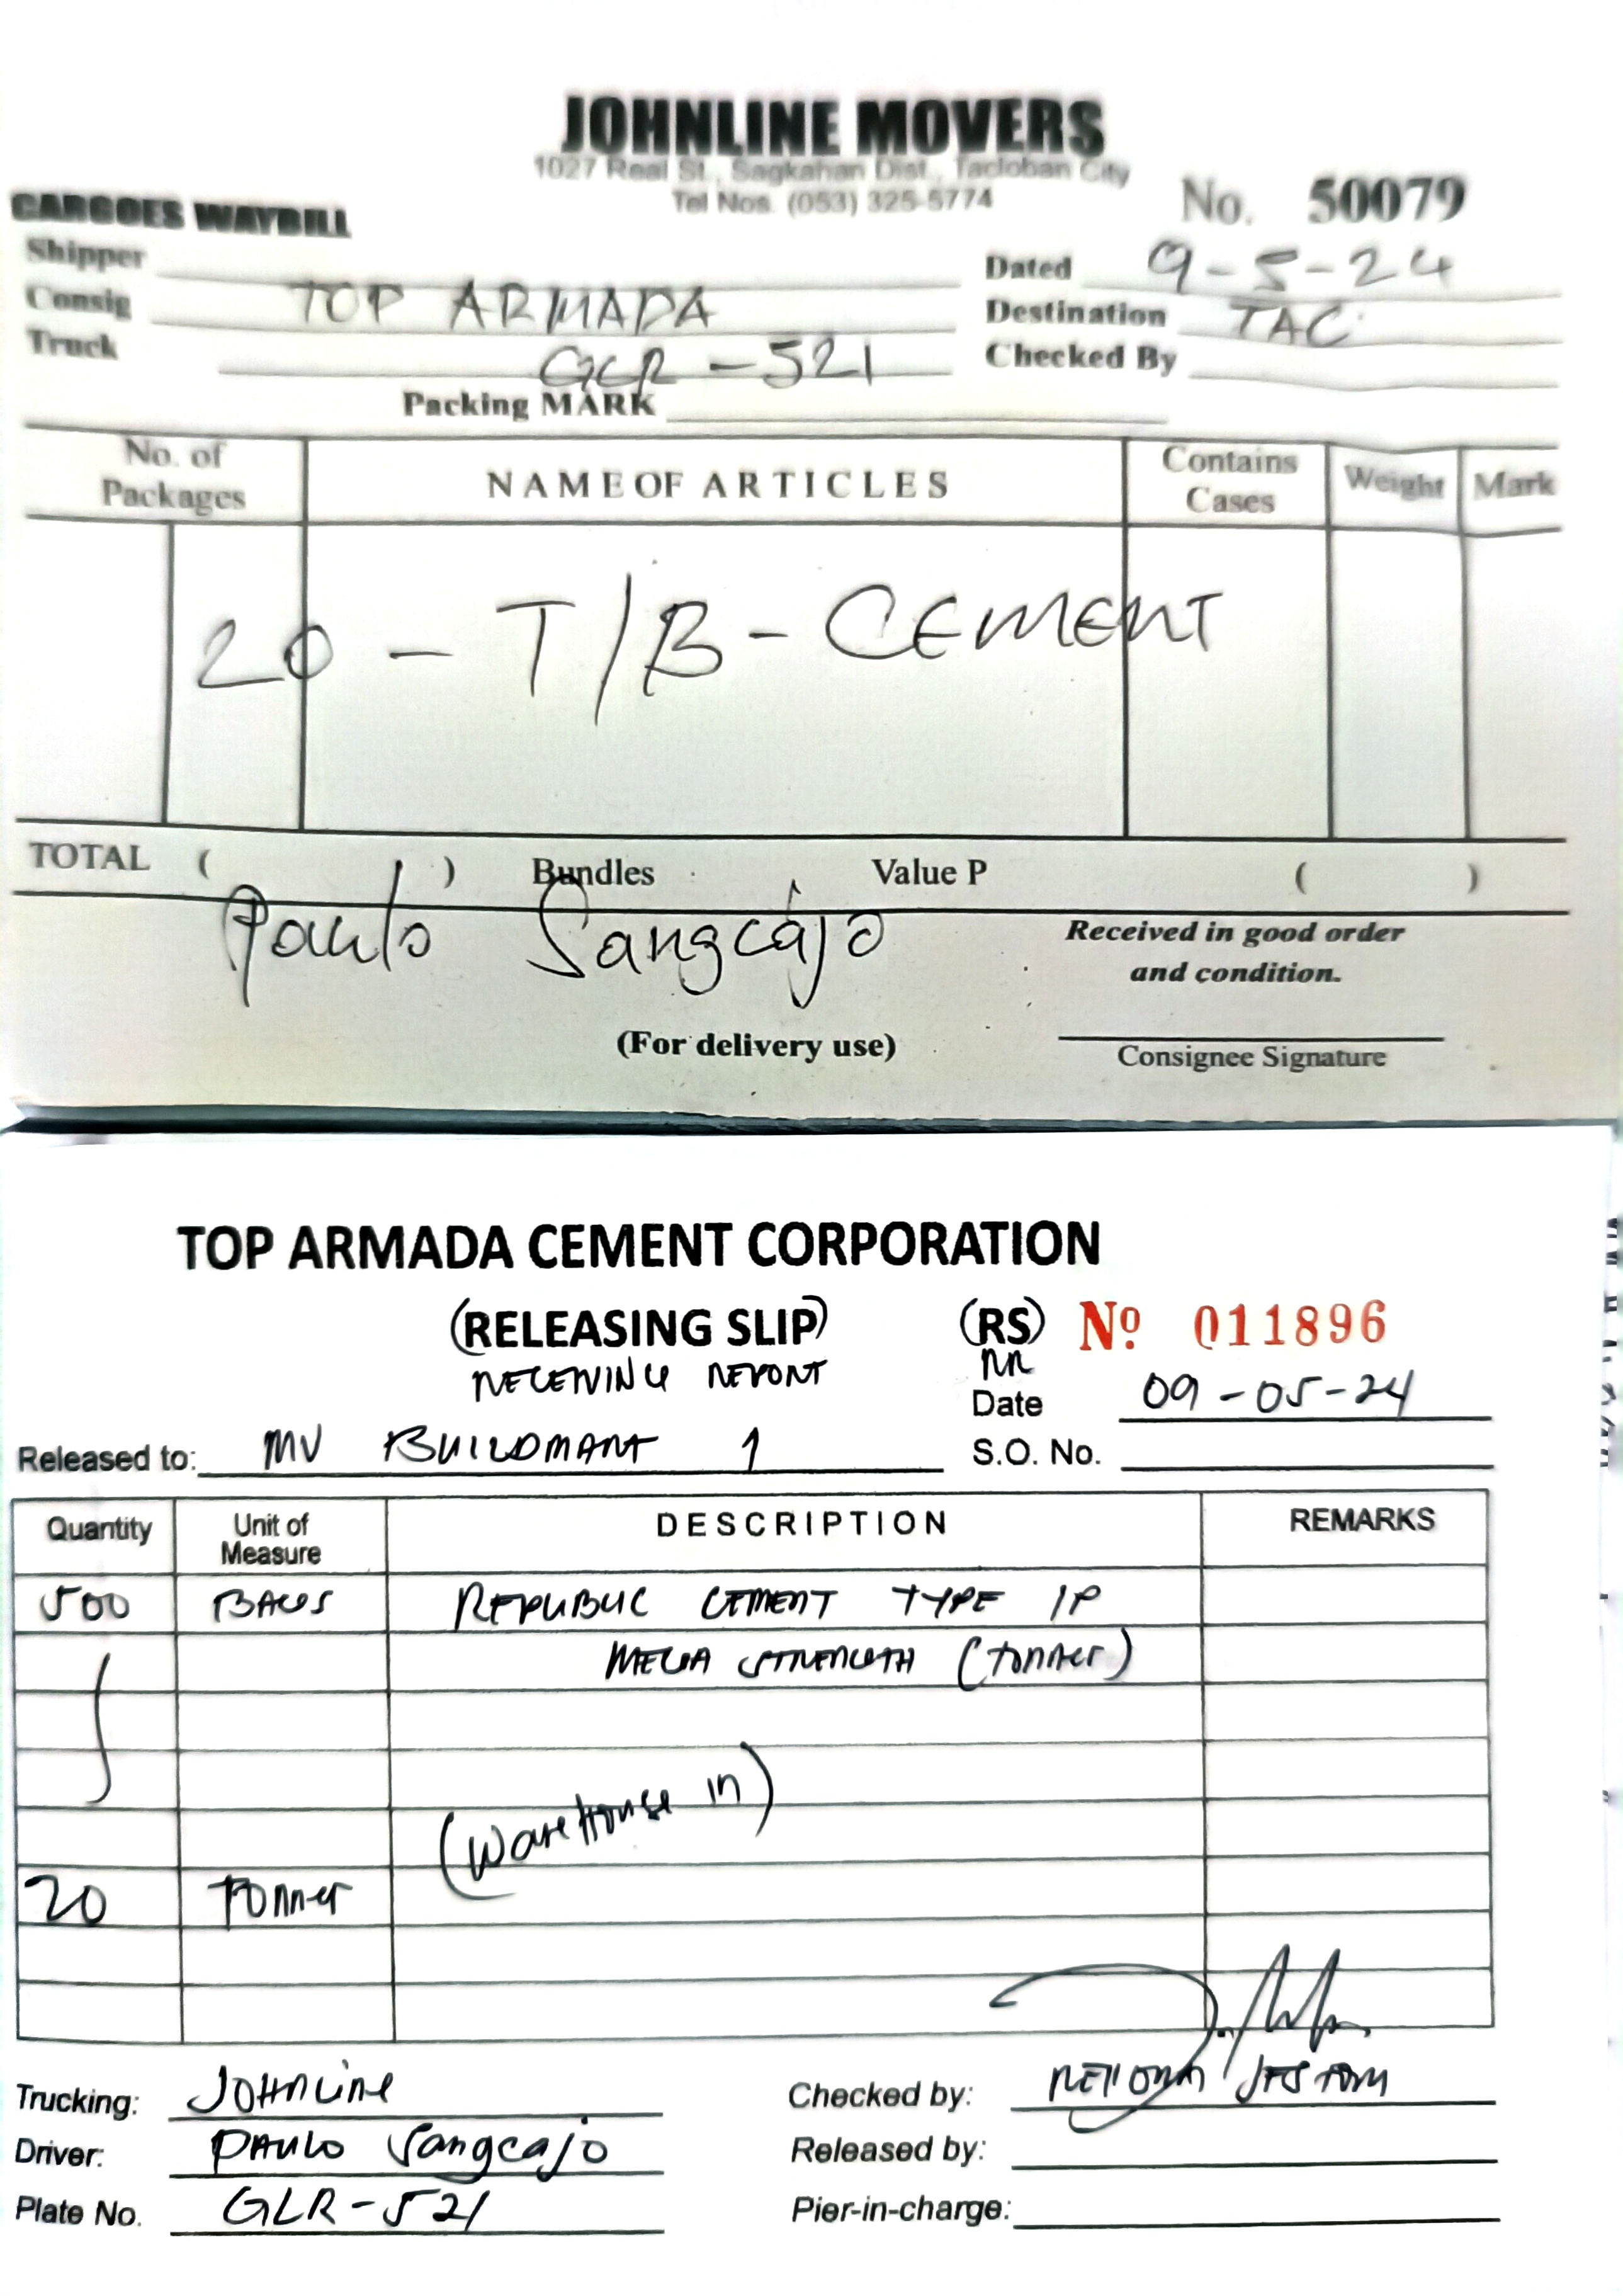 JOHNLINE MOVERS
1027 Real St., Sagkahan Dist., Tacloban City
Tel Nos. (053) 325-5774
CARGOES WAYBILL No. 50079
Shipper Dated 9-5-24
Consig TOP ARMADA Destination TAC
Truck GLR-521 Checked By
Packing MARK
No. of Packages NAME OF ARTICLES Contains Cases Weight Mark
20 - T/B - CEMENT
TOTAL ( ) Bundles Value P ( )
Paulo Sangcajo
Received in good order
and condition.
(For delivery use)
Consignee Signature
TOP ARMADA CEMENT CORPORATION
(RELEASING SLIP) (RS) Nº 011896
RECEIVING REPORT RR
Date 09-05-24
Released to: MV BUILDMART 1 S.O. No.
Quantity Unit of Measure DESCRIPTION REMARKS
500 BAGS REPUBLIC CEMENT TYPE 1P
MEGA STRENGTH (TONNER)
(Warehouse in)
20 TONNER
Trucking: JOHNLINE Checked by:
Driver: PAULO Sangcajo Released by:
Plate No. GLR-521 Pier-in-charge: